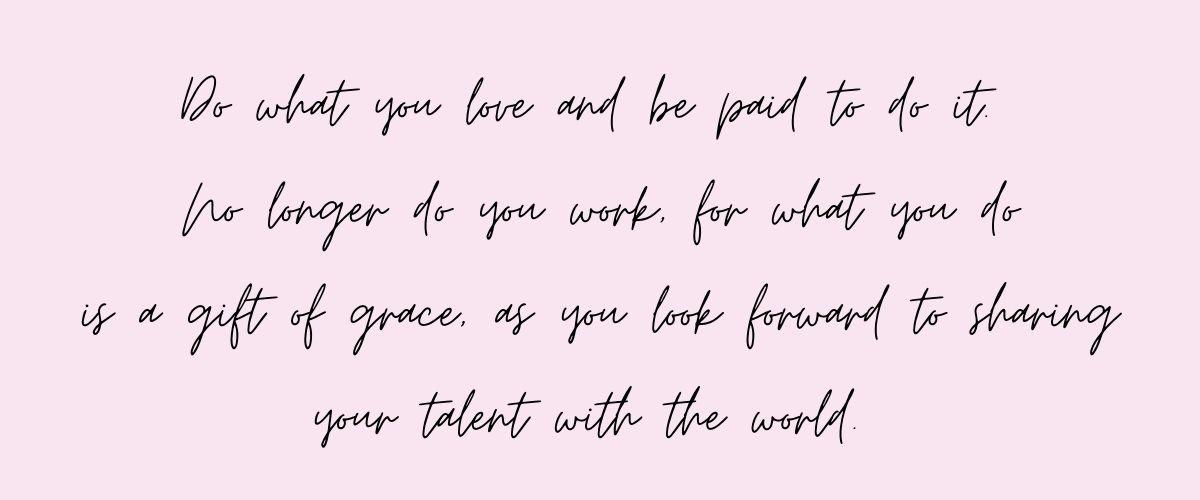 Do what you love and be paid to do it.
No longer do you work, for what you do
is a gift of grace, as you look forward to sharing
your talent with the world.